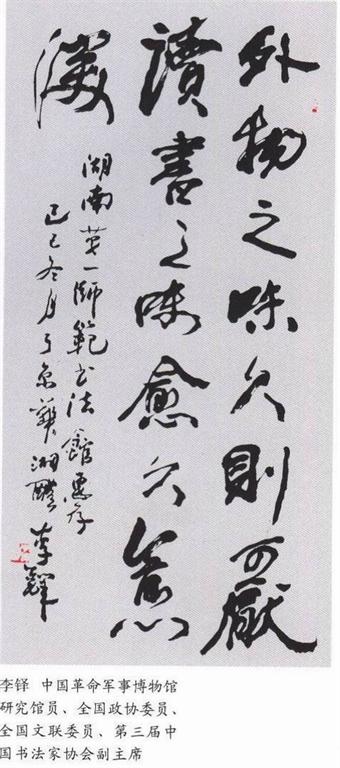 外物之味久則可厭
讀書之味愈久愈
深
湖南第一師範書法館惠存
己巳冬月于京華湘醴李鐸
李铎 中国革命军事博物馆
研究馆员、全国政协委员、
全国文联委员、第三届中
国书法家协会副主席